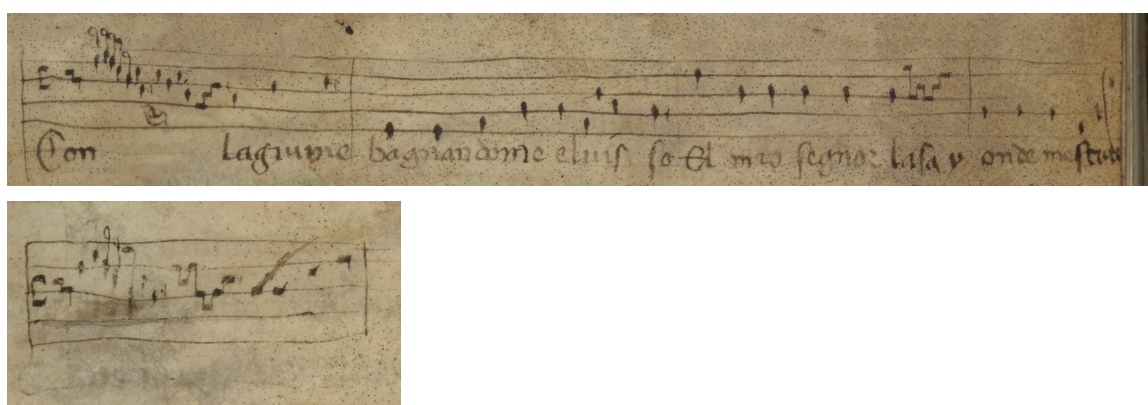 Con lagrime bagnandome el vis so El mio segnor lasay onde me